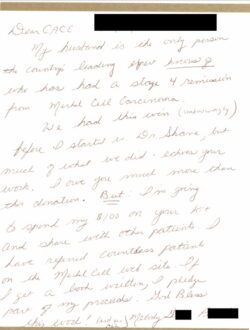 Dear CACE
My husband is the only person
the country's leading expert knows of
who has had a stage 4 remission
from Merkel Cell Carcinoma.
We had this win (unknowingly)
before I started w. Dr. Shane, but
much of what we did - echoes your
work. I owe you much more than
this donation. But: I'm going
to spend my $100 on your kit
and share with other patients I
have referred countless patients
on the Merkel Cell web site. If
I get a book written, I pledge
part of my proceeds. God Bless
this work!